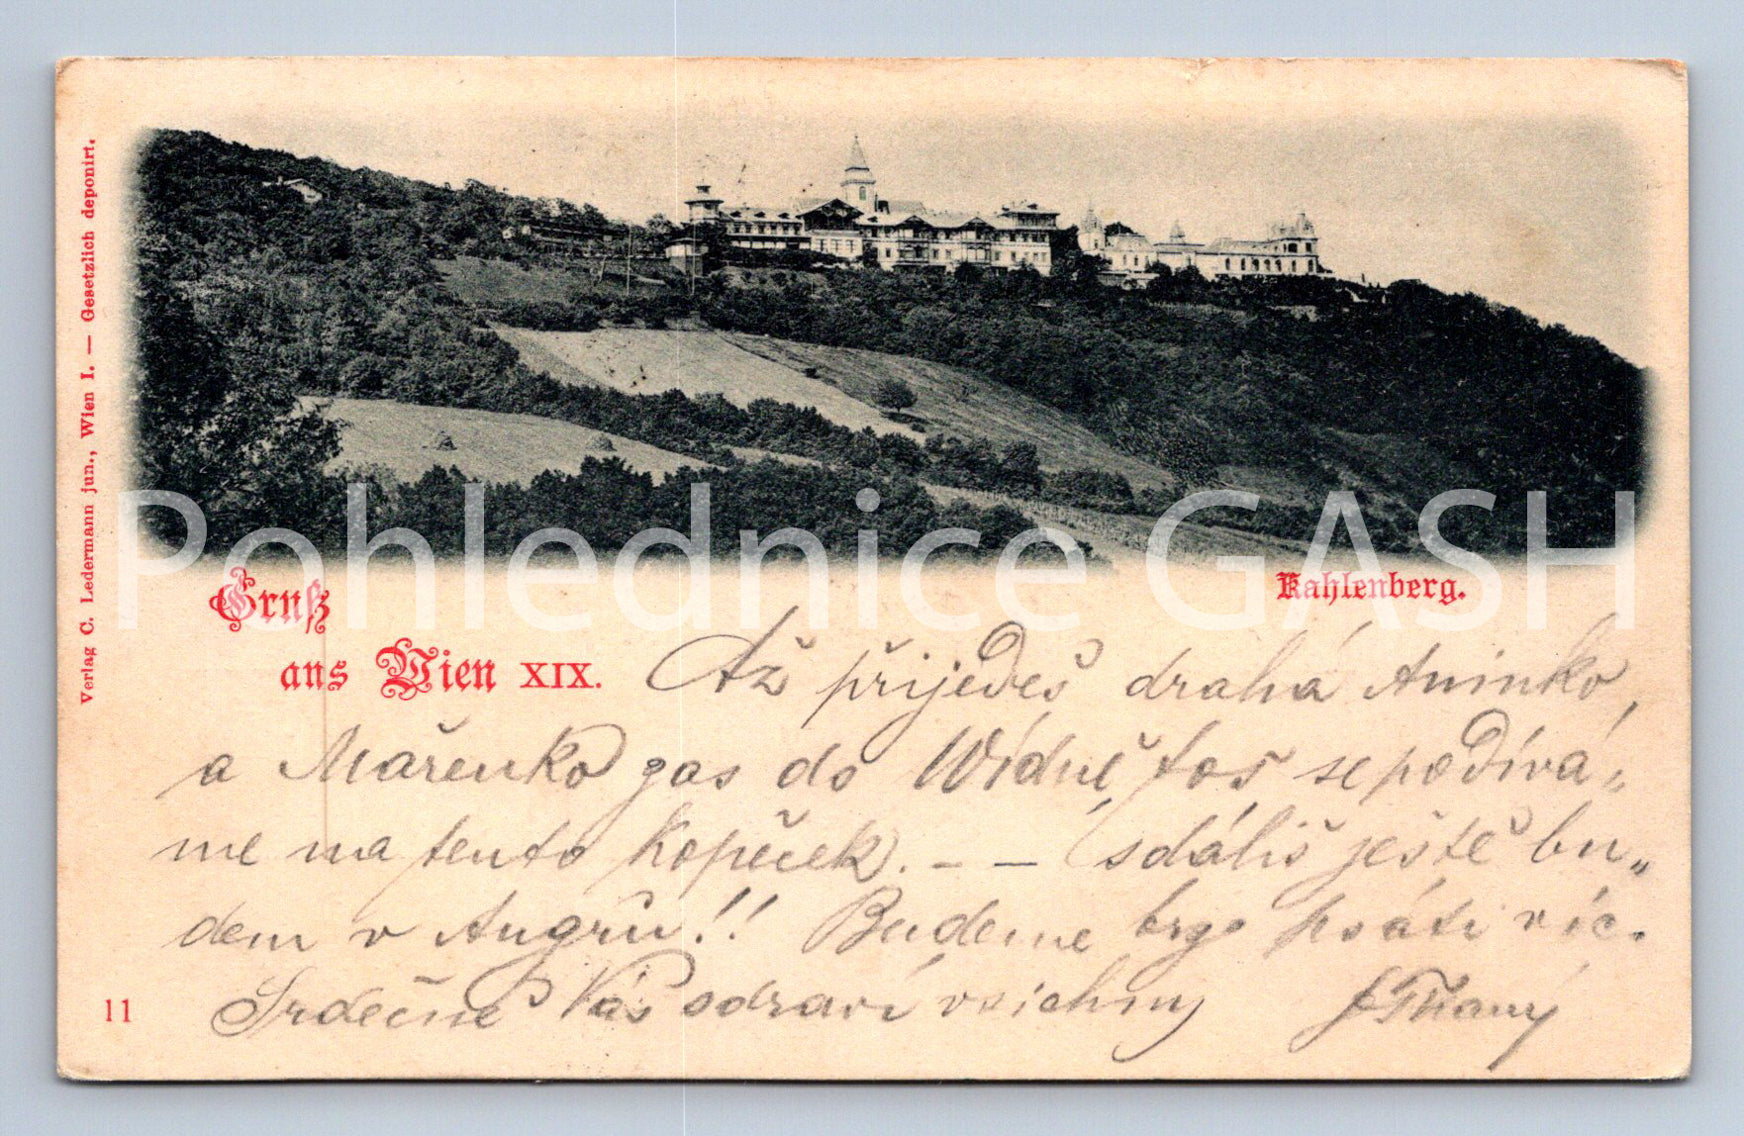 Verlag C. Ledermann jun., Wien I. — Gesetzlich deponirt.
Pohlednice GASH
Gruß
aus Wien XIX.
Kahlenberg.
Až přijedeš drahá Aninko,
a Mařenko zas do Wídně toš se podívá„
me na tento kopeček. – –
jestě bu„
dem v !! Budeme psáti víc.
Srdečně Vás vsichny
11